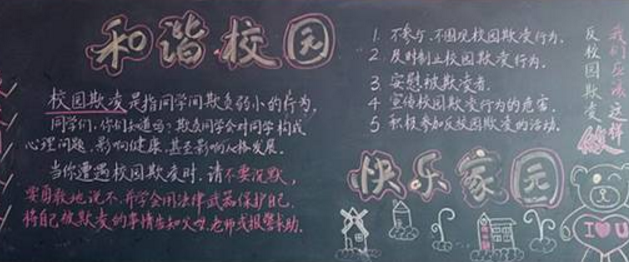 和谐校园
校园欺凌是指同学间欺负弱小的行为,
同学们,你们知道吗?欺负同学会对同学构成
心理问题,影响健康,甚至影响人格发展。
当你遭遇校园欺凌时,请不要沉默,
要勇敢地说不,并学会用法律武器保护自己,
将自己被欺凌的事情告知父母,老师或报警求助。
1. 不参与,不围观校园欺凌行为。
2. 及时制止校园欺凌行为。
3. 安慰被欺凌者。
4 宣传校园欺凌行为的危害。
5 积极参加反校园欺凌的活动。
我们应该这样
做
反校园欺凌
快乐家园
I ♥ U